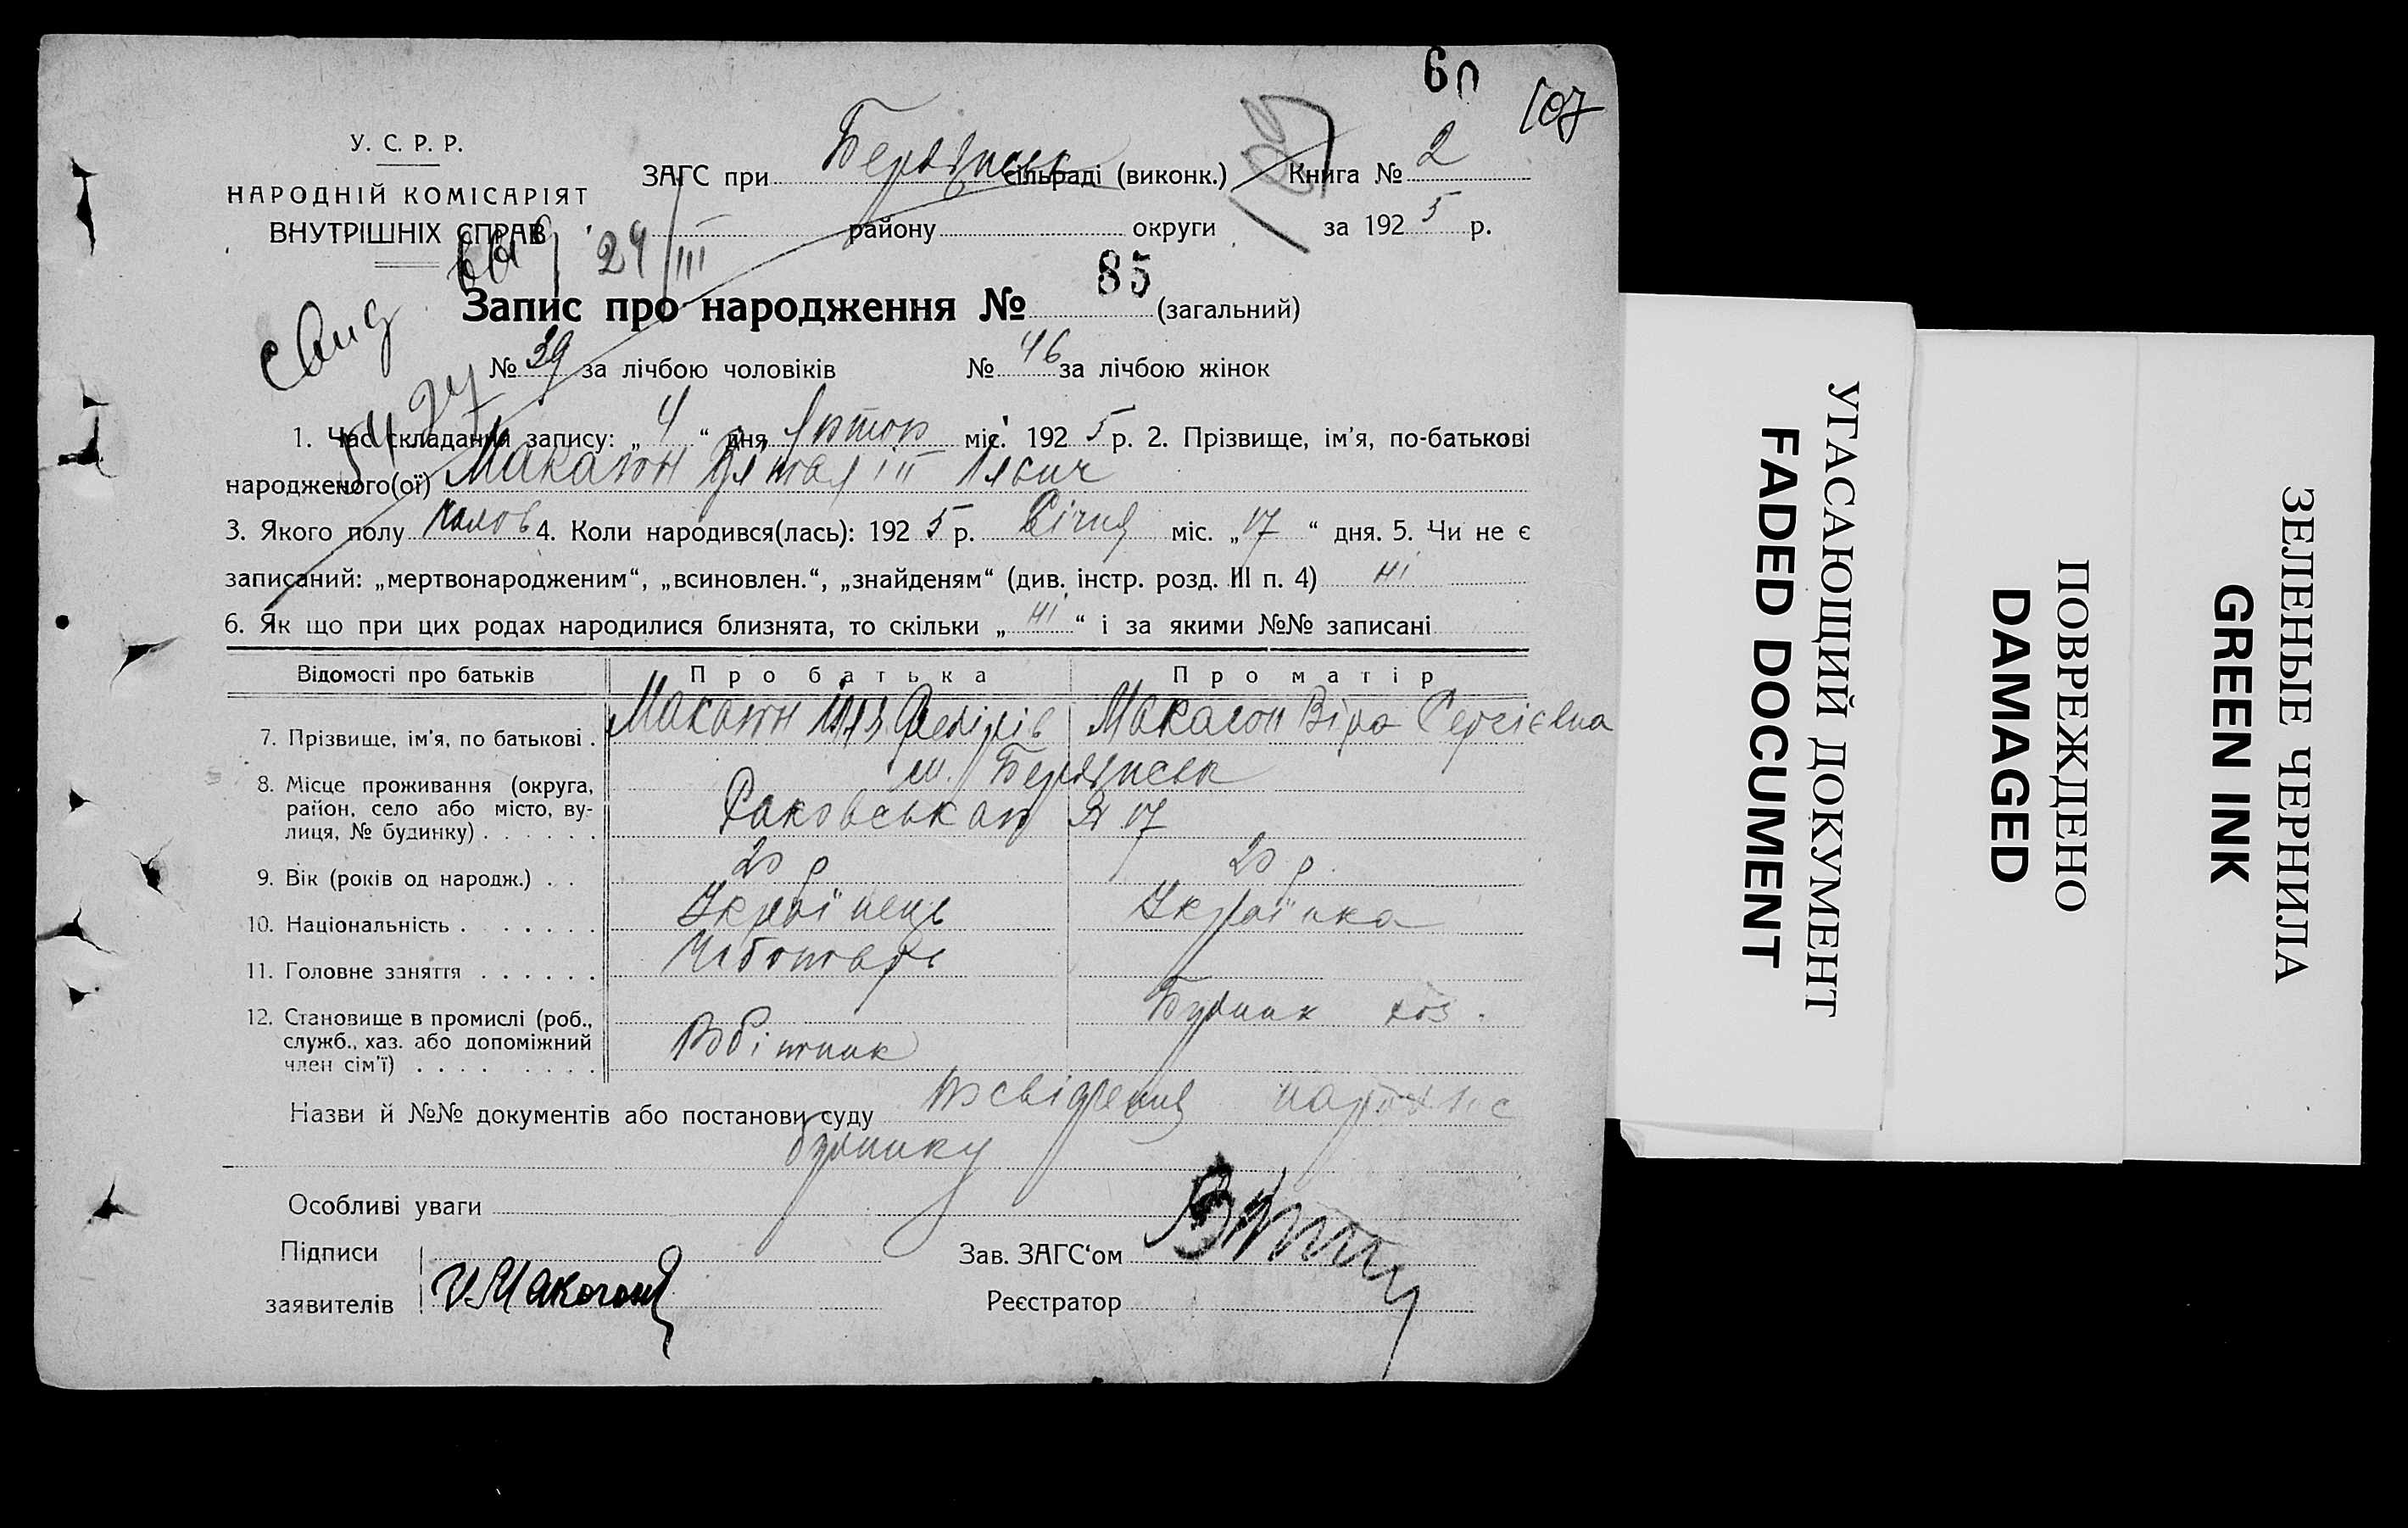 60
107
У. С. Р. Р.
НАРОДНІЙ КОМІСАРІЯТ
ВНУТРІШНІХ СПРАВ
ЗАГС при сільраді (виконк.) Книга № 2
району округи за 1925 р.
24/III
Запис про народження № 85 (загальний)
№ 39 за лічбою чоловіків № 46 за лічбою жінок
1. Час складання запису: „4“ дня міс. 1925 р. 2. Прізвище, ім'я, по-батькові
народженого(ої) Макагон
3. Якого полу чолов 4. Коли народився(лась): 1925 р. Січня міс. „17“ дня. 5. Чи не є
записаний: „мертвонародженим“, „всиновлен.“, „знайденям“ (див. інстр. розд. III п. 4) ні
6. Як що при цих родах народилися близнята, то скільки „ні“ і за якими №№ записані
Відомості про батьків Про батька Про матір
7. Прізвище, ім'я, по батькові . Макагон Макагон Віра Сергієвна
8. Місце проживання (округа, район, село або місто, вулиця, № будинку) . . . . . .
м.
Раковська № 17
9. Вік (років од народж.) . . 20 р 20 р.
10. Національність . . . . . . Українець Українка
11. Головне заняття . . . . . . Чоботарь
12. Становище в промислі (роб., служб., хаз. або допоміжний член сім'ї) . . . . . . . . Робітник
Назви й №№ документів або постанови суду посвідчення
будинку
Особливі уваги
Підписи Зав. ЗАГС'ом
заявителів Макогон Реєстратор
УГАСАЮЩИЙ ДОКУМЕНТ
FADED DOCUMENT
ПОВРЕЖДЕНО
DAMAGED
ЗЕЛЕНЫЕ ЧЕРНИЛА
GREEN INK